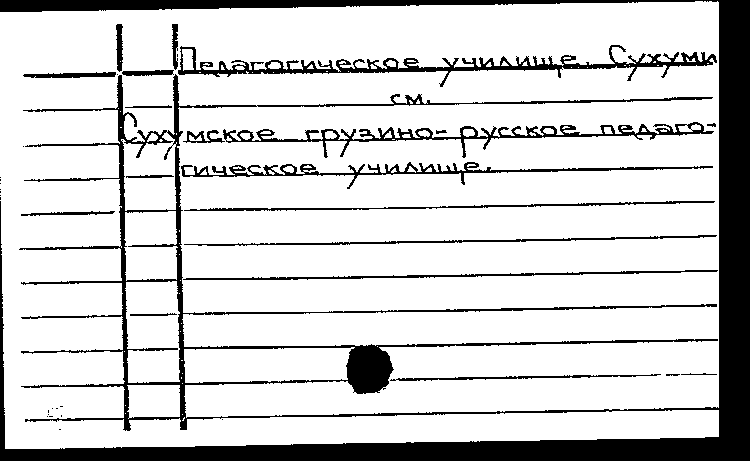 Педагогическое училище. Сухуми
см.
Сухумское грузино-русское педаго-
гическое училище.